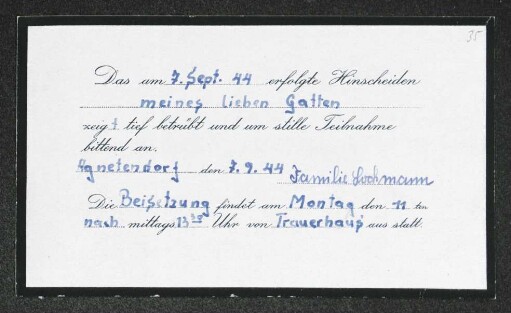 35
Das am 7. Sept. 44 erfolgte Hinscheiden
meines lieben Gatten
zeigt tief betrübt und um stille Teilnahme
bittend an.
Agnetendorf den 7.9.44 Familie
Die Beisetzung findet am Montag den 11 ten
nach mittags 13 30 Uhr von Trauerhaus aus statt.